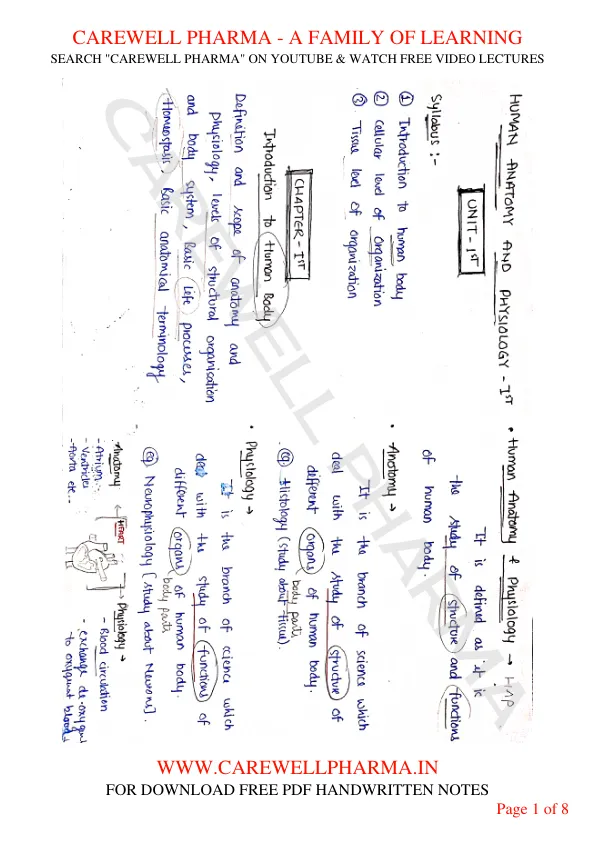 CAREWELL PHARMA - A FAMILY OF LEARNING
SEARCH "CAREWELL PHARMA" ON YOUTUBE & WATCH FREE VIDEO LECTURES
HUMAN ANATOMY AND PHYSIOLOGY - Ist
UNIT - Ist
Syllabus :-
① Introduction to human body
② Cellular level of Organization
③ Tissue level of organization
CHAPTER - Ist
Introduction to Human Body
Definition and scope of anatomy and
physiology, levels of structural organisation
and body system, Basic life processes,
Homeostasis, Basic anatomical terminology
• Human Anatomy & Physiology → HAP
It is defined as it is
the study of structure and functions
of human body.
• Anatomy →
It is the branch of science which
deal with the study of structure of
different organs of human body.
body parts
eg Histology (study about tissue).
• Physiology →
It is the branch of science which
deal with the study of functions of
different organs of human body.
body parts
eg Neurophysiology [study about Neurons].
Anatomy
- Atrium
- Ventricles
- Aorta etc.-
HEART
Physiology →
- Blood circulation
- exchange de-oxygen
to oxygenat blood
CAREWELL PHARMA
WWW.CAREWELLPHARMA.IN
FOR DOWNLOAD FREE PDF HANDWRITTEN NOTES
Page 1 of 8